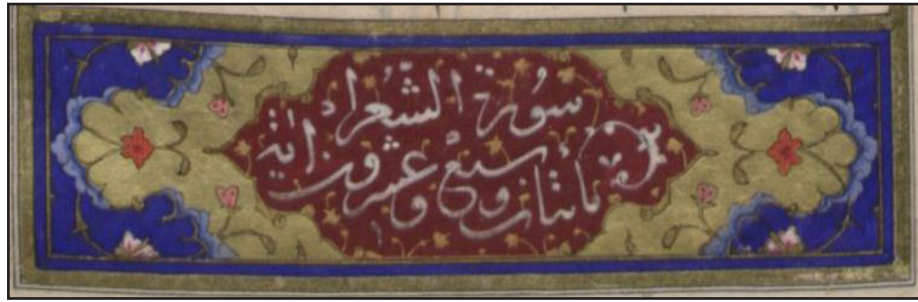 سُورة الشُّعراء
مائتان وسبع وعشرون اية